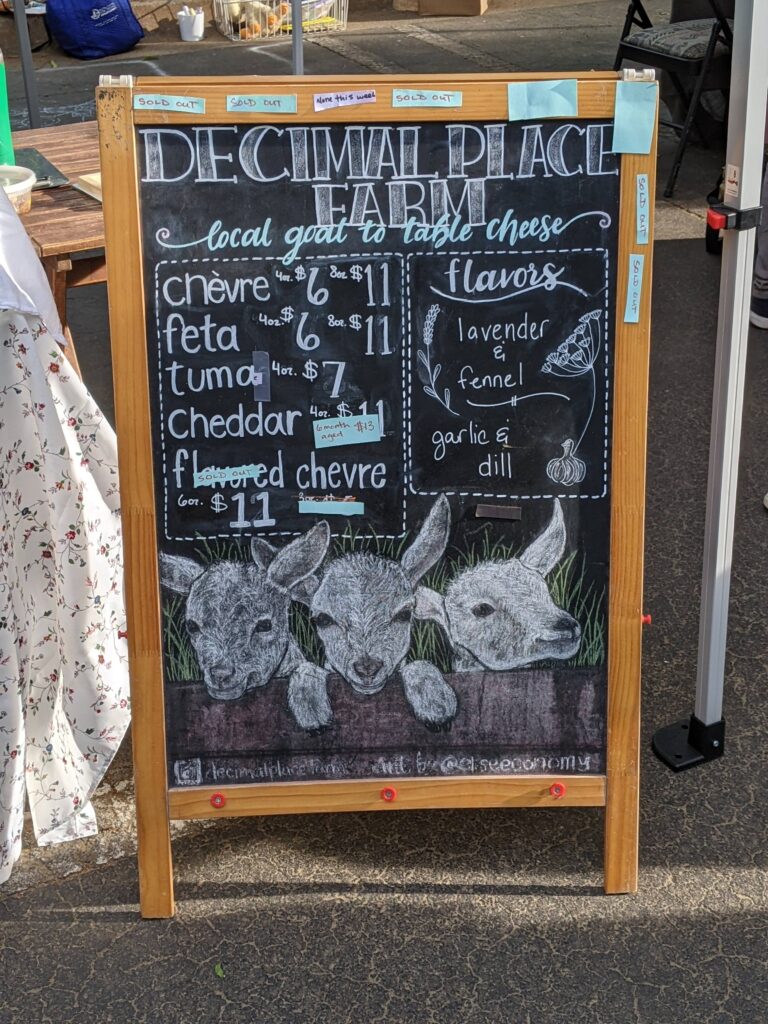 SOLD OUT SOLD OUT None this week SOLD OUT
DECIMAL PLACE
FARM
local goat to table cheese
SOLD OUT
SOLD OUT
chèvre 4oz. $6 8oz $11
feta 4oz. $6 8oz. $11
tuma 4oz. $7
cheddar 4oz. $11
6 month aged $13
flavored chevre
SOLD OUT
6oz. $11
flavors
lavender
&
fennel
garlic &
dill
/decimalplacefarm art by @eliseeconomy